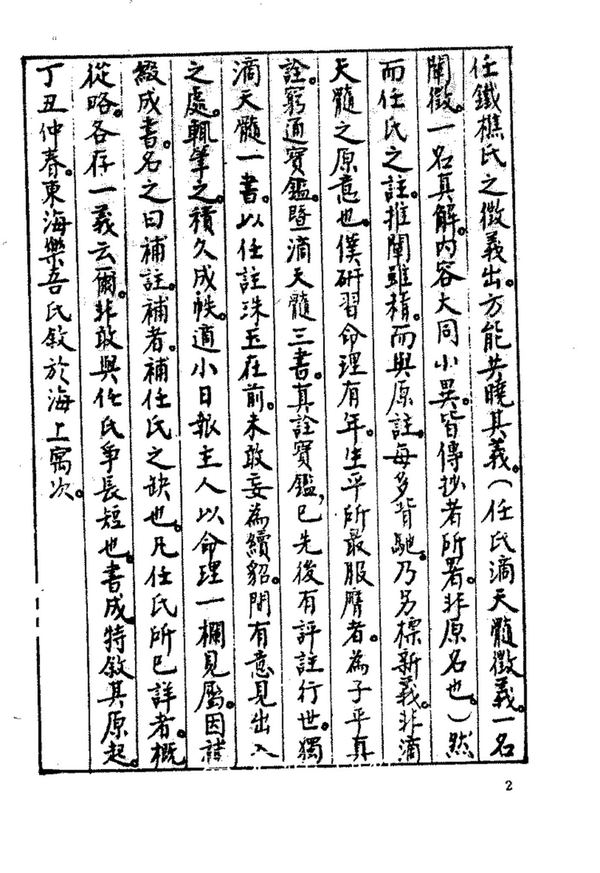 任鐵樵氏之徵義出。方能共曉其義。(任氏滴天髓徵義。一名
闡微。一名真解。内容大同小異。皆傳抄者所署。非原名也。)然
而任氏之註。推闡雖精。而與原註。每多背馳。乃另標新義。非滴
天髓之原意也。僕研習命理有年。生平所最服膺者。為子平真
詮。窮通寶鑑。暨滴天髓三書。真詮寶鑑、已先後有評註行世。獨
滴天髓一書。以任註珠玉在前。未敢妄為續貂。間有意見出入
之處。輒筆之。積久成帙。適小日報主人以命理一欄見屬。因諸
綴成書。名之曰補註。補者。補任氏之缺也。凡任氏所已詳者。概
從略。各存一義云爾。非敢與任氏爭長短也。書成特敘其原起。
丁丑仲春。東海樂吾氏敘於海上寓次。
2